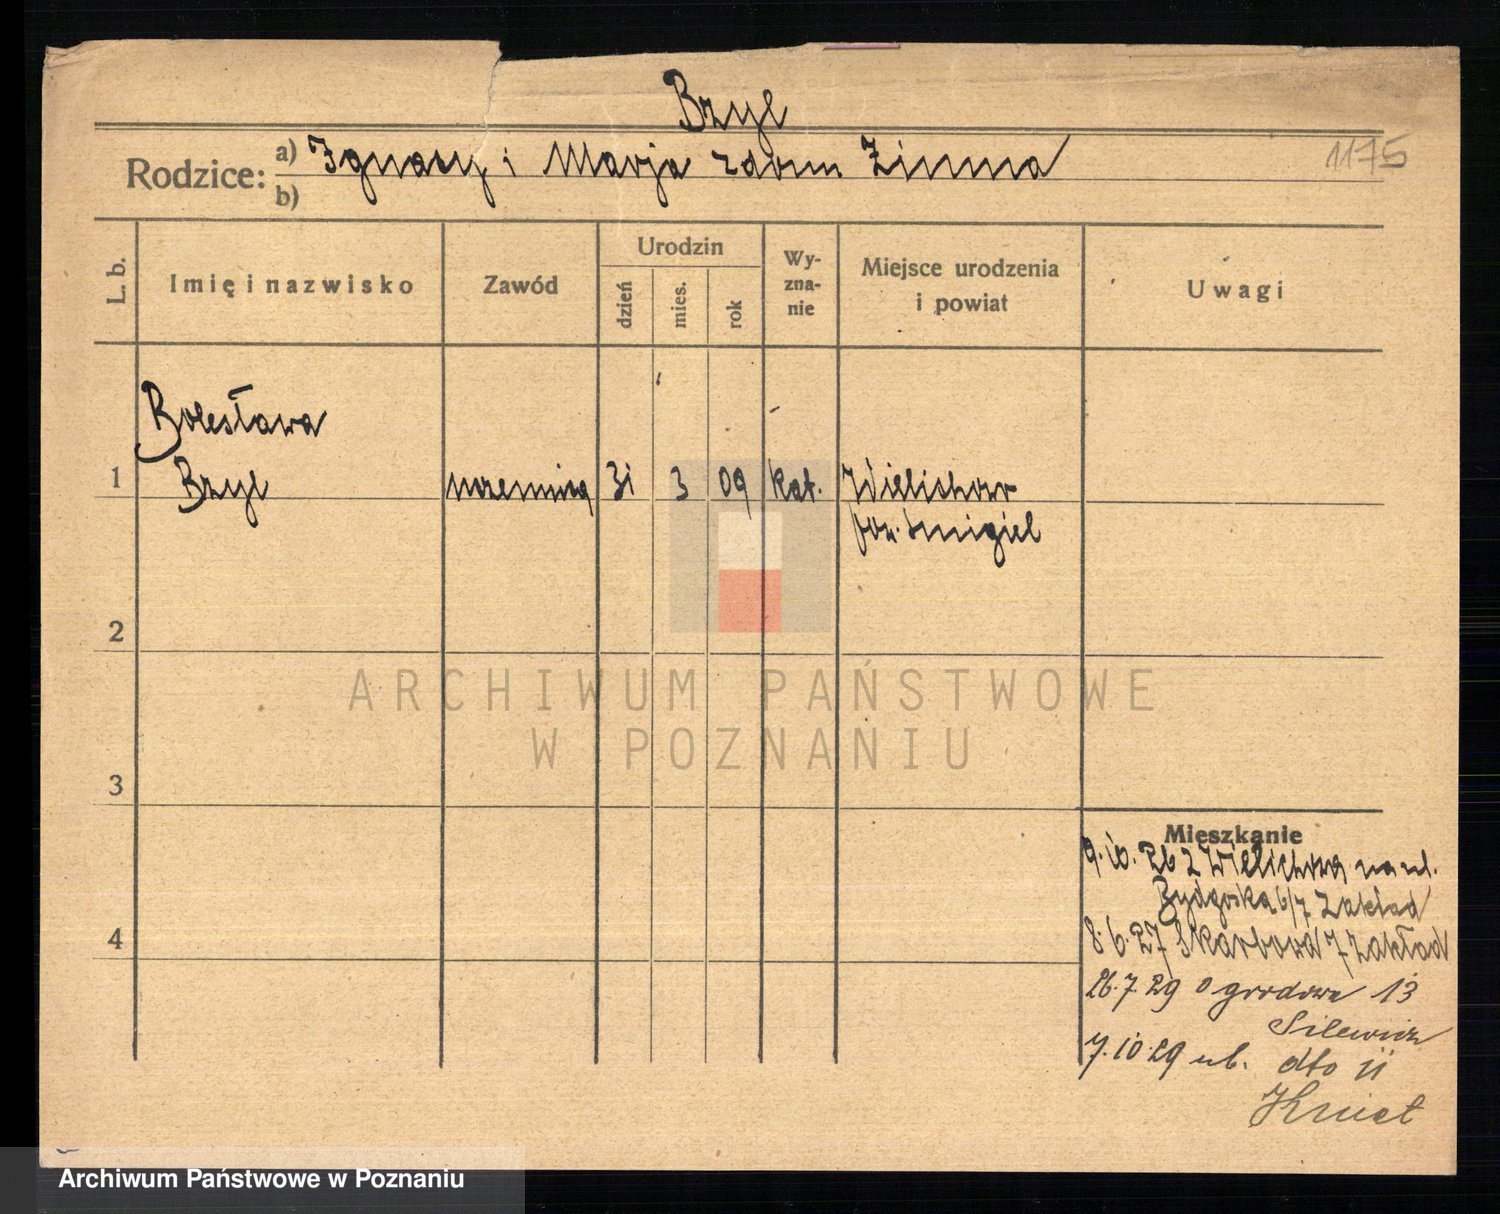 Bzyl
Rodzice: a) Ignacy i Marja z dom Zimna
b)
1175
L. b.
Imię i nazwisko
Zawód
Urodzin
dzień
mies.
rok
Wy-
zna-
nie
Miejsce urodzenia
i powiat
Uwagi
Bolesława
1 Bzyl uczennica 31 3 09 kat. Wielichowo
pow. Śmigiel
2
3
4
ARCHIWUM PAŃSTWOWE
W POZNANIU
Mieszkanie
9.10.26 z Wielichowa na ul.
Bydgoska 6/7 Zakład
8.6.27 Skarbowa 7 Zakład
26.7.29 Ogrodowa 13
Silewicz
7.10.29 ul. dto 11
Archiwum Państwowe w Poznaniu